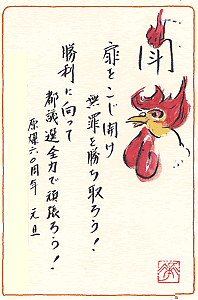 闘
扉をこじ開け
無罪を勝ち取ろう!
勝利に向って
都議選全力で頑張ろう!
原爆六〇周年 元旦